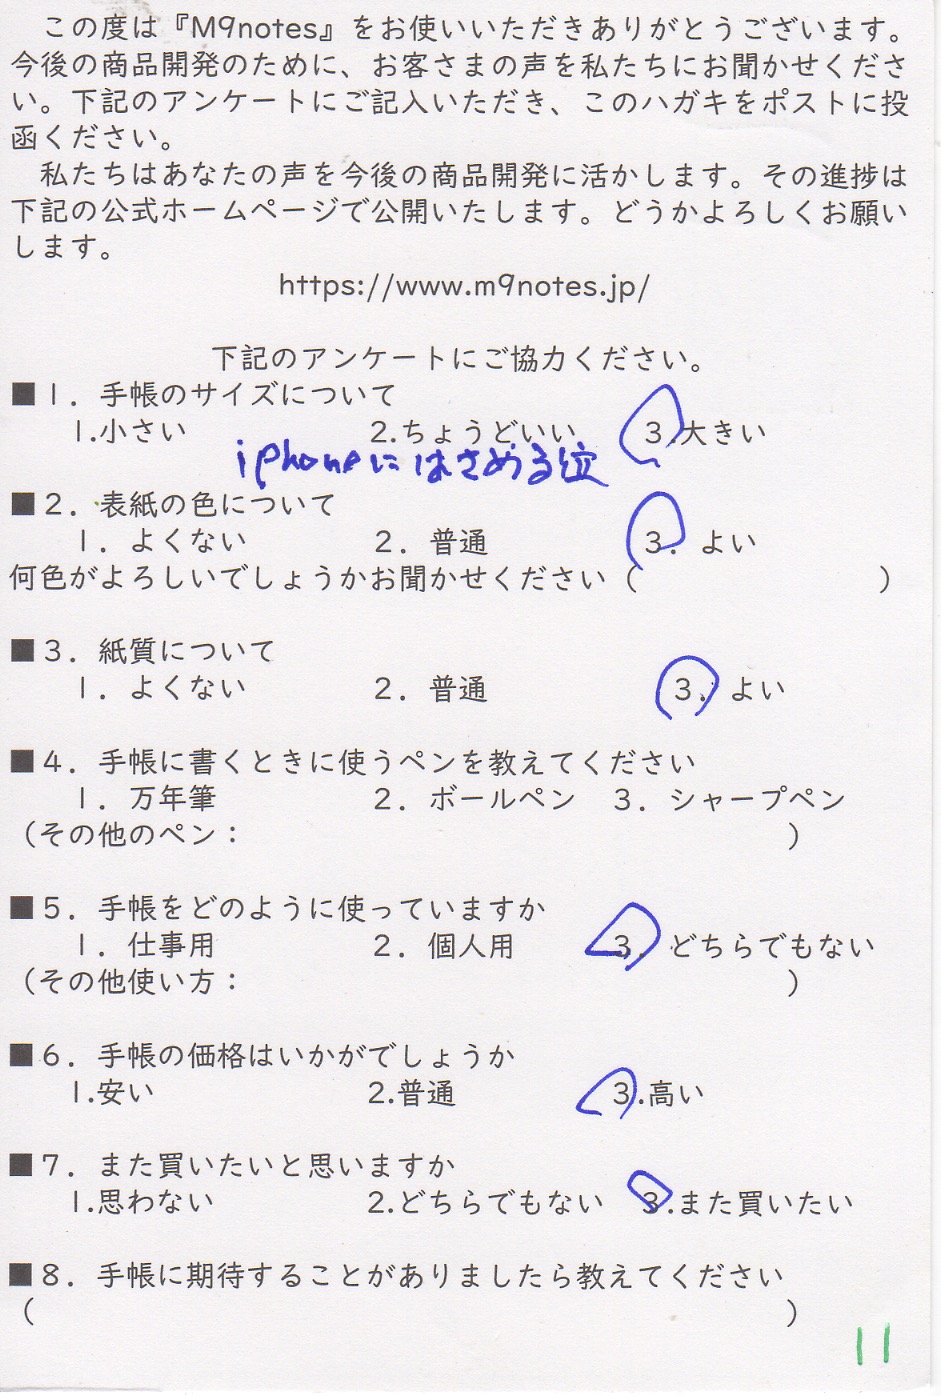 この度は『M9notes』をお使いいただきありがとうございます。
今後の商品開発のために、お客さまの声を私たちにお聞かせくださ
い。下記のアンケートにご記入いただき、このハガキをポストに投
函ください。
私たちはあなたの声を今後の商品開発に活かします。その進捗は
下記の公式ホームページで公開いたします。どうかよろしくお願い
します。
https://www.m9notes.jp/
下記のアンケートにご協力ください。
■1．手帳のサイズについて
1.小さい 2.ちょうどいい 3.大きい
iphoneにはさめる位
■2．表紙の色について
1．よくない 2．普通 3．よい
何色がよろしいでしょうかお聞かせください（ ）
■3．紙質について
1．よくない 2．普通 3．よい
■4．手帳に書くときに使うペンを教えてください
1．万年筆 2．ボールペン 3．シャープペン
（その他のペン： ）
■5．手帳をどのように使っていますか
1．仕事用 2．個人用 3．どちらでもない
（その他使い方： ）
■6．手帳の価格はいかがでしょうか
1.安い 2.普通 3.高い
■7．また買いたいと思いますか
1.思わない 2.どちらでもない 3.また買いたい
■8．手帳に期待することがありましたら教えてください
（ ）
11